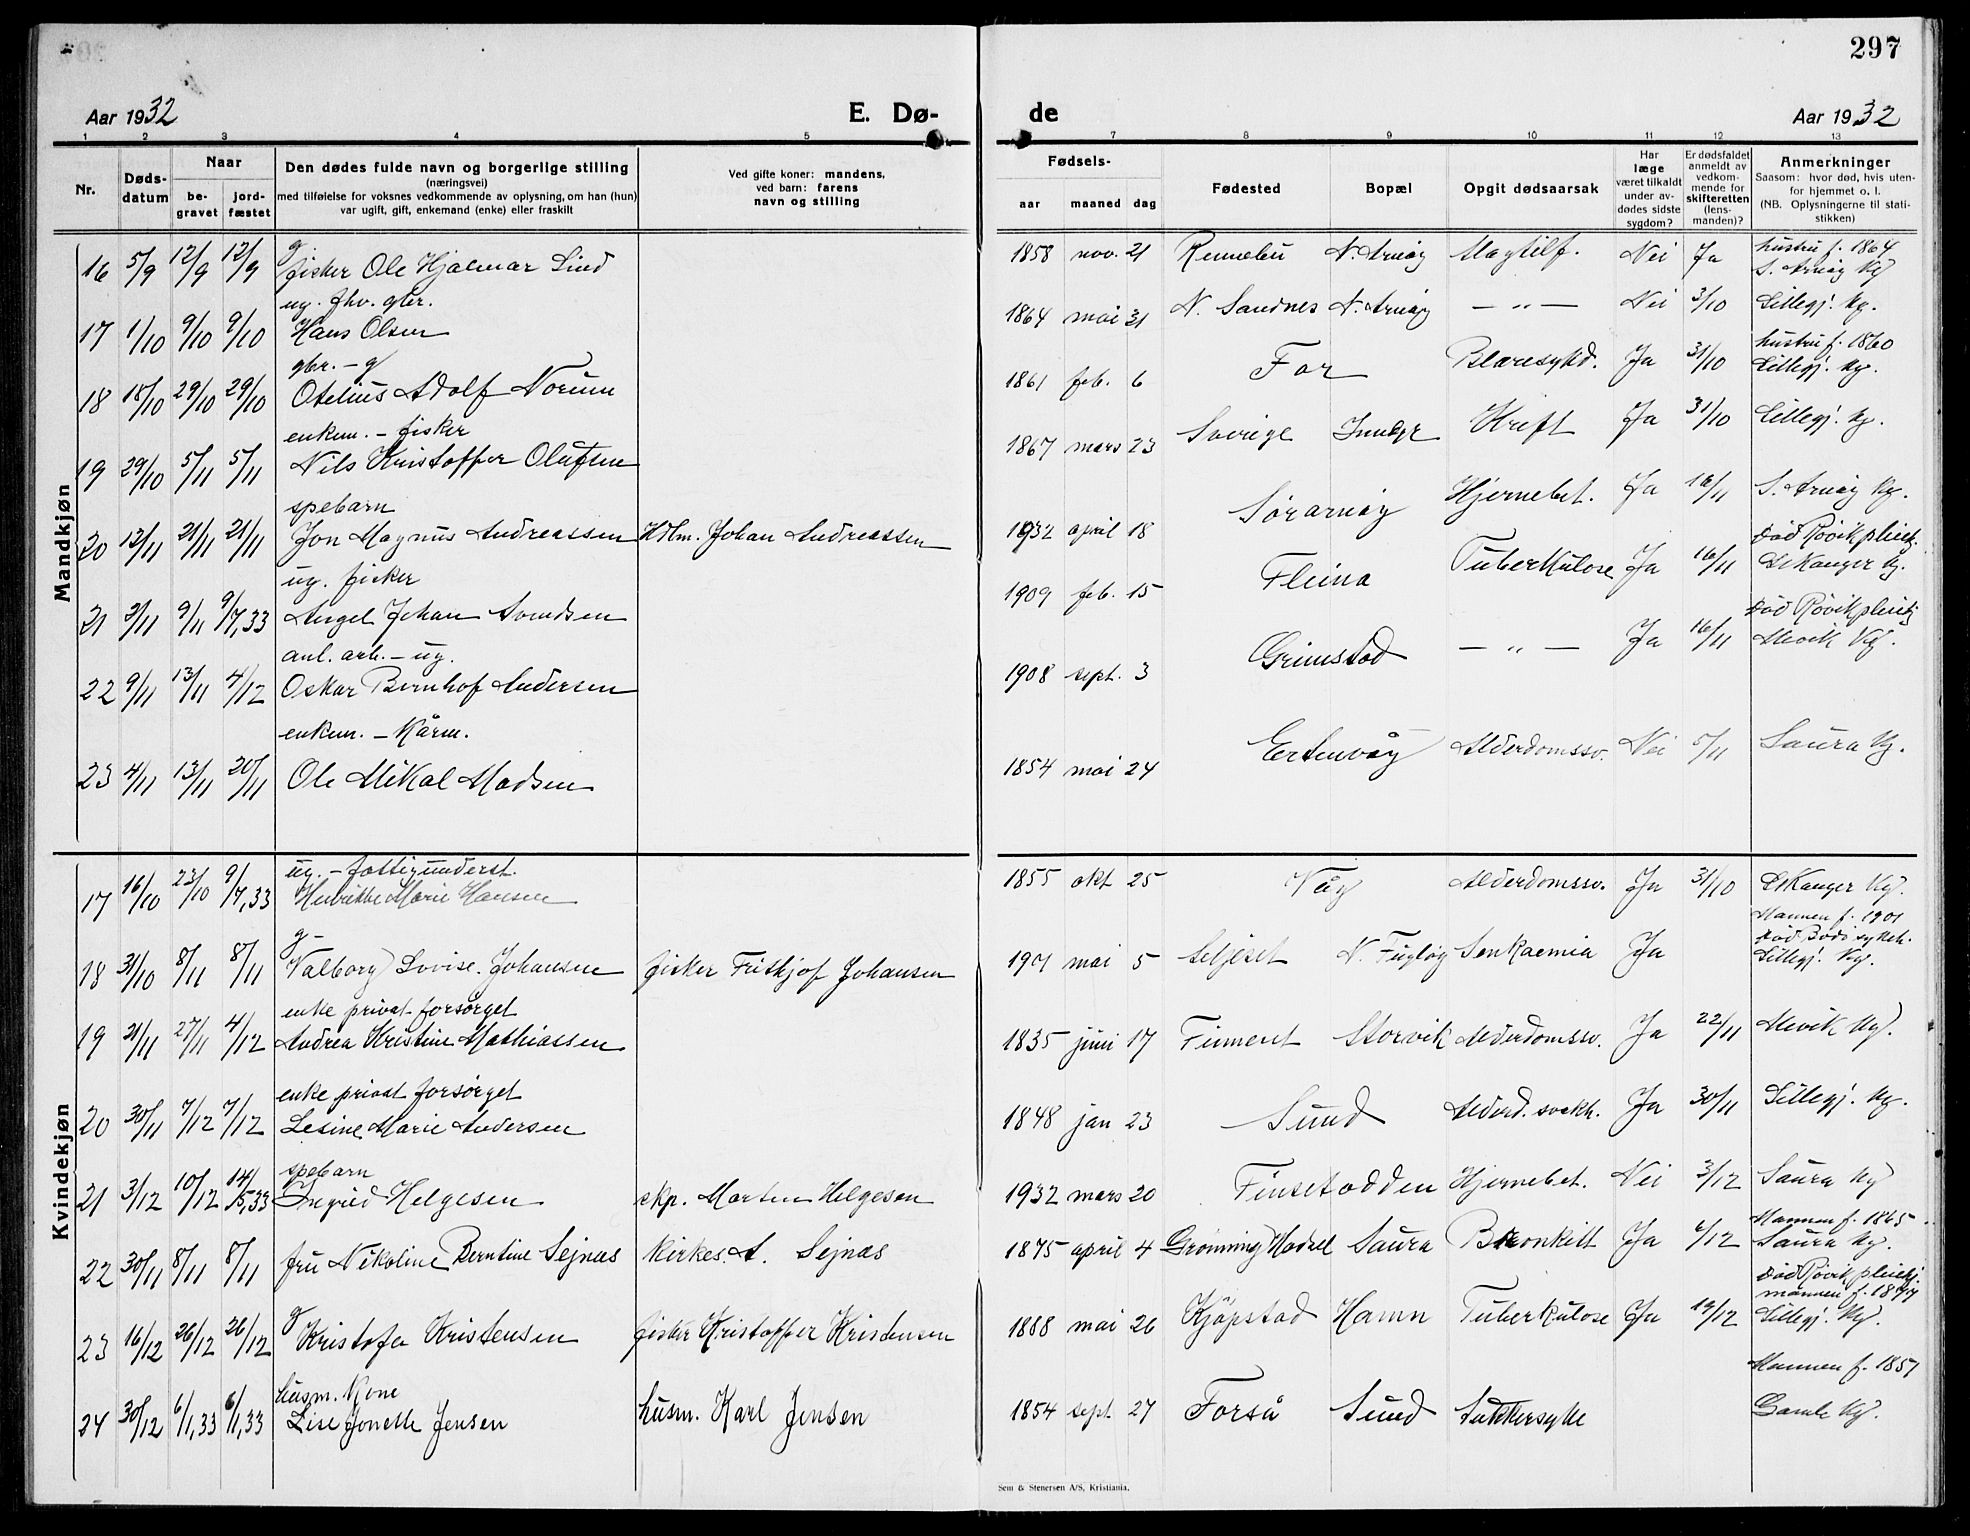 297
Aar 1932 E. Dø- de Aar 1932
1 2 3 4 5 7 8 9 10 11 12 13
Nr. Dødsdatum Naar begravet jordfæstet
Den dødes fulde navn og borgerlige stilling (næringsvei) med tilføielse for voksnes vedkommende av oplysning, om han (hun) var ugift, gift, enkemand (enke) eller fraskilt
Ved gifte koner: mandens, ved barn: farens navn og stilling
Fødsels- aar maaned dag
Fødested Bopæl Opgit dødsaarsak
Har læge været tilkaldt under avdødes sidste sygdom?
Er dødsfaldet anmeldt av vedkommende for skifteretten (lensmanden)?
Anmerkninger Saasom: hvor død, hvis utenfor hjemmet o. l. (NB. Oplysningerne til statistikken)
Mandkjøn
16 5/9 12/9 12/9 g fisker Ole Hjalmar Lind 1858 nov. 21 Rennebu N. Arnøy Slagtilf. Nei Ja hustru f. 1864 S. Arnøy Kg.
17 1/10 9/10 9/10 ug. fhv. gbr. Hans Olsen 1864 mai 31 N. Sandnes N. Arnøy — „ — Nei 3/10 Lillegj. kg.
18 18/10 29/10 29/10 gbr. - g Otelius Adolf Norum 1861 feb. 6 For Blæresykd. Ja 31/10 hustru f. 1860 Lillegj. kg.
19 29/10 5/11 5/11 enkem. - fisker Nils Kristoffer Olufsen 1867 mars 23 Sverige Inndyr Kreft Ja 31/10 Lillegj. kg.
20 12/11 21/11 21/11 spebarn Jon Magnus Andreassen Hdlm. Johan Andreassen 1932 april 18 Sørarnøy Hjernebet. Ja 16/11 S. Arnøy kg.
21 2/11 9/11 9/7,33 ug. fisker Angel Johan Svendsen 1909 feb. 15 Fleina Tuberkulose Ja 16/11 død Røvik pleiehj. Økanger kg.
22 9/11 13/11 4/12 anl. arb. - ug. Oskar Bernhof Andersen 1908 sept. 3 Grimstad — „ — Ja 16/11 død Røvik pleiehj Mevik Kg.
23 4/11 13/11 20/11 enkem. - Kårm. Ole Mikal Madsen 1854 mai 24 Ertenvåg Alderdomssv. Nei 5/11 Saura kg.
Kvindekjøn
17 16/10 23/10 9/7,33 ug. - fattigunderst. Henrikke Marie Hansen 1855 okt 25 Våg Alderdomssv. Ja 31/10 Økanger Kg.
18 31/10 8/11 8/11 g - Valborg Lovise Johansen fisker Frithjof Johansen 1901 mai 5 Seljeset N. Fugløy Ja Mannen f. 1901 død Bodø sykeh. Lillegj. Kg.
19 21/11 27/11 4/12 enke privat forsørget Andrea Kristine Mathiassen 1835 juni 17 Finneset Storvik Alderdomssv. Ja 22/11 Mevik kg.
20 30/11 7/12 7/12 enke privat forsørget Lesine Marie Andersen 1848 jan 23 Sund Alderd. svakh. Ja 30/11 Lillegj. kg.
21 3/12 10/12 14/5,33 spebarn Ingrid Helgesen skp. Morten Helgesen 1932 mars 20 Finsetodden Hjernebet. Nei 3/12 Saura kg
22 30/11 8/11 8/11 fru Nikoline Berntine Sejnæs kirkes. A. Sejnæs 1875 april 4 Grønning Hadsel Saura Bronkitt Ja 6/12 Mannen f. 1865 Saura kg.
23 16/12 26/12 26/12 g Kristofa Kristensen fisker Kristoffer Kristensen 1888 mai 26 Kjøpstad Hamn Tuberkulose Ja 19/12 død Røvik pleiehj. mannen f. 1877 Lillegj. Kg.
24 30/12 6/1,33 6/1,33 husm. Kone Lise Jonette Jensen husm. Karl Jensen 1854 sept. 27 Forså Sund Sukkersyke Mannen f. 1851 Gamle Kg.
Sem & Stenersen A/S, Kristiania.